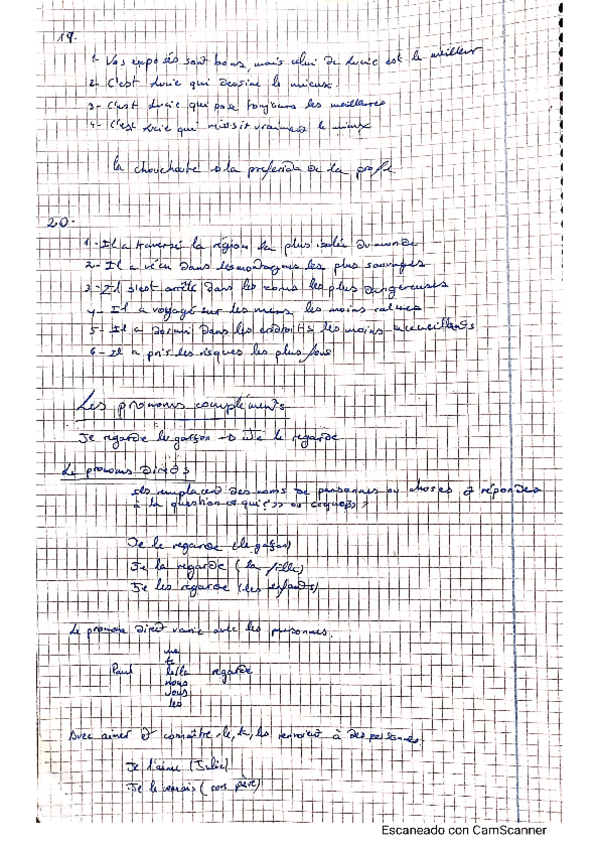 19.
1- Vos exposés sont bons, mais celui de Lucie est le meilleur
2- C'est Lucie qui dessine le mieux.
3- C'est Lucie qui pose toujours les meilleures
4- C'est Lucie qui réussit vraiment le mieux
la chouchoute → la preferida de la profe
20.
1- Il a traversé la région la plus isolée du monde
2- Il a vécu dans les montagnes les plus sauvages
3- Il s'est arrêté dans les zones les plus dangereuses
4- Il a voyagé sur les mers les moins calmes
5- Il a dormi dans les endroits les moins accueillants
6- Il a pris les risques les plus fous
Les pronoms compléments
Je regarde le garçon → le regarde
Le pronoms directs
remplacent des noms de personnes ou choses et répondes
à la question «qui?» ou «quoi?»
Je le regarde (le garçon)
Je la regarde (la fille)
Je les regarde (les enfants)
Le pronom direct varie avec les personnes.
me
te
Paul le/la regarde
nous
vous
les
Avec aimer et connaître, le, la, les renvoient à des personnes.
Je l'aime (Julie)
Je le connais (son père)
Escaneado con CamScanner